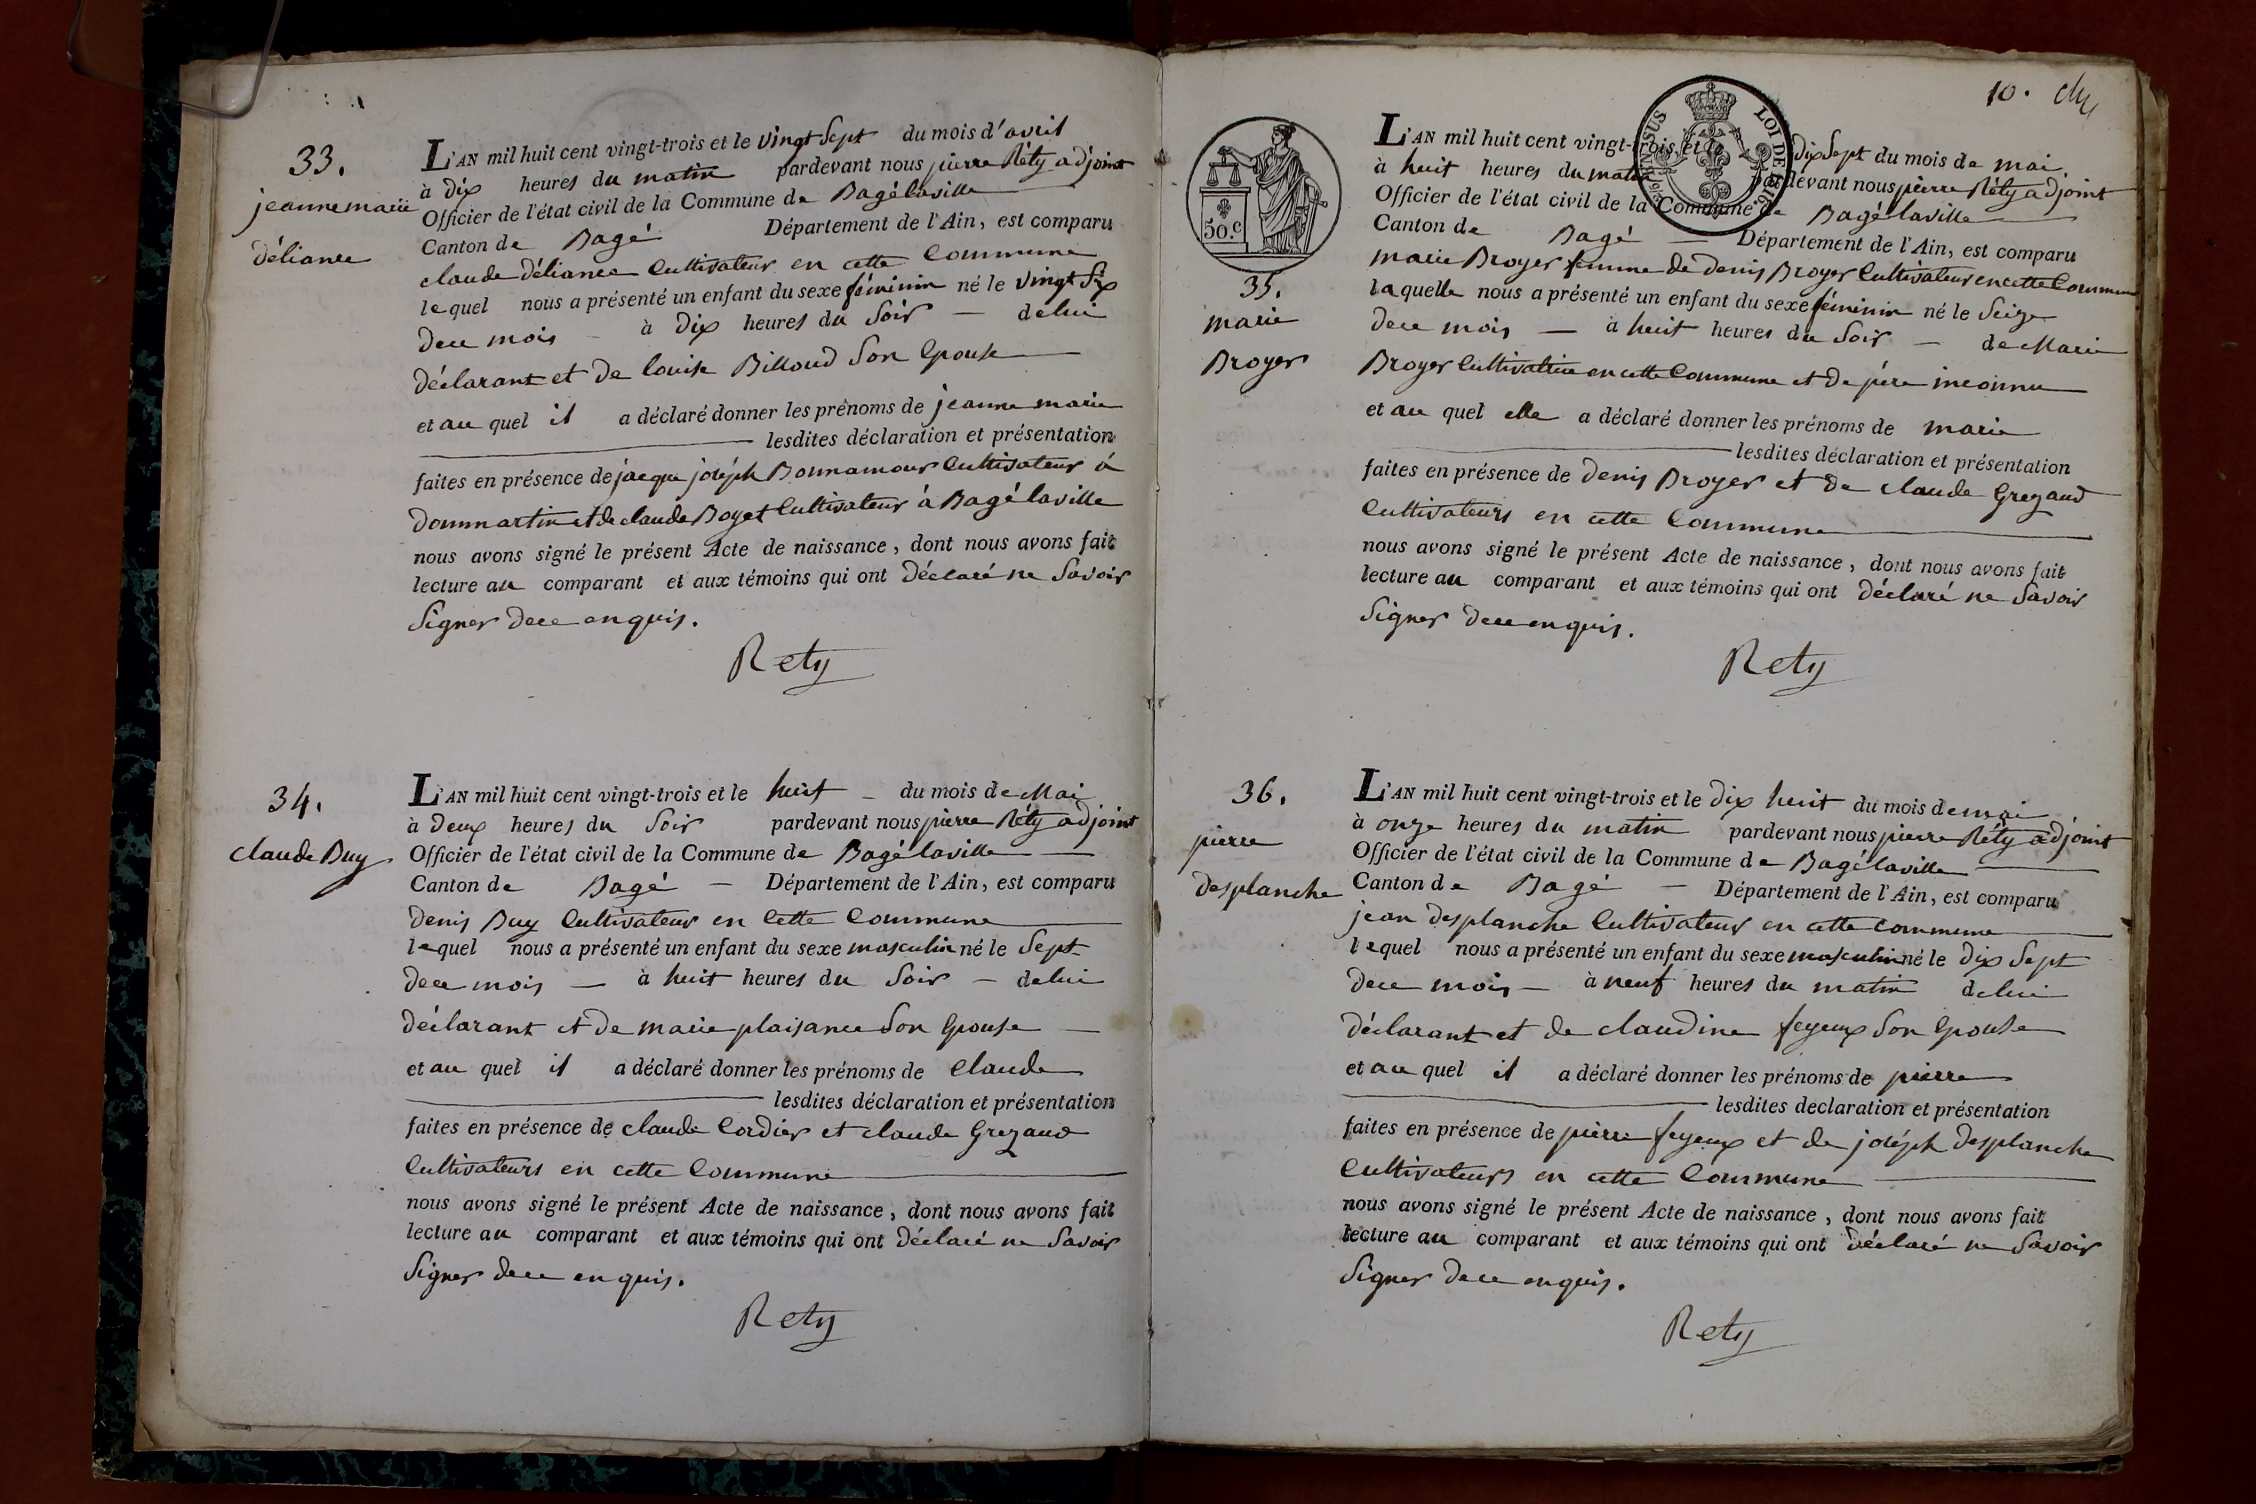 33.
jeanne marie
déliance
L'AN mil huit cent vingt-trois et le vingt Sept du mois d'avril
à dix heures du matin pardevant nous pierre Réty adjoint
Officier de l'état civil de la Commune de Bagélaville
Canton de Bagé Département de l'Ain, est comparu
claude déliance Cultivateur en cette Commune
lequel nous a présenté un enfant du sexe féminin né le vingt Six
de ce mois à dix heures du Soir — de lui
déclarant et de louise Billoud Son Epouse
et au quel il a déclaré donner les prénoms de jeanne marie
lesdites déclaration et présentation
faites en présence de jacque joséph Bonnamour Cultivateur à
dommartin et de claude Boyet Cultivateur à Bagélaville
nous avons signé le présent Acte de naissance, dont nous avons fait
lecture au comparant et aux témoins qui ont déclaré ne Savoir
Signer de ce enquis.
Rety
34.
claude Buy
L'AN mil huit cent vingt-trois et le huit — du mois de Mai
à deux heures du Soir pardevant nous pierre Réty adjoint
Officier de l'état civil de la Commune de Bagélaville
Canton de Bagé — Département de l'Ain, est comparu
denis Buy Cultivateur en Cette Commune
lequel nous a présenté un enfant du sexe masculin né le Sept
de ce mois — à huit heures du Soir — de lui
déclarant et de marie plaisance Son Epouse —
et au quel il a déclaré donner les prénoms de Claude
lesdites déclaration et présentation
faites en présence de claude Cordier et claude Grezaud
Cultivateurs en cette Commune
nous avons signé le présent Acte de naissance, dont nous avons fait
lecture au comparant et aux témoins qui ont déclaré ne Savoir
Signer de ce enquis.
Rety
10.
50.c
LOI DE 1816.
35.
marie
Broyer
L'AN mil huit cent vingt-trois et le dix Sept du mois de mai
à huit heures du matin pardevant nous pierre Réty adjoint
Officier de l'état civil de la Commune de Bagélaville
Canton de Bagé — Département de l'Ain, est comparu
marie Broyer femme de denis Broyer Cultivateur en cette Commune
laquelle nous a présenté un enfant du sexe féminin né le Seize
de ce mois — à huit heures du Soir — de Marie
Broyer Cultivatrice en cette Commune et de père inconnu
et au quel elle a déclaré donner les prénoms de marie
lesdites déclaration et présentation
faites en présence de denis Broyer et de claude Grezaud
Cultivateurs en cette Commune
nous avons signé le présent Acte de naissance, dont nous avons fait
lecture au comparant et aux témoins qui ont déclaré ne Savoir
Signer de ce enquis.
Rety
36.
pierre
desplanche
L'AN mil huit cent vingt-trois et le dix huit du mois de mai
à onze heures du matin pardevant nous pierre Réty adjoint
Officier de l'état civil de la Commune de Bagélaville
Canton de Bagé — Département de l'Ain, est comparu
jean desplanche Cultivateur en cette commune
lequel nous a présenté un enfant du sexe masculin né le dix Sept
de ce mois — à neuf heures du matin de lui
déclarant et de claudine feyeux Son Epouse
et au quel il a déclaré donner les prénoms de pierre
lesdites declaration et présentation
faites en présence de pierre feyeux et de joséph desplanche
Cultivateurs en cette Commune
nous avons signé le présent Acte de naissance, dont nous avons fait
lecture au comparant et aux témoins qui ont déclaré ne Savoir
Signer de ce enquis.
Rety